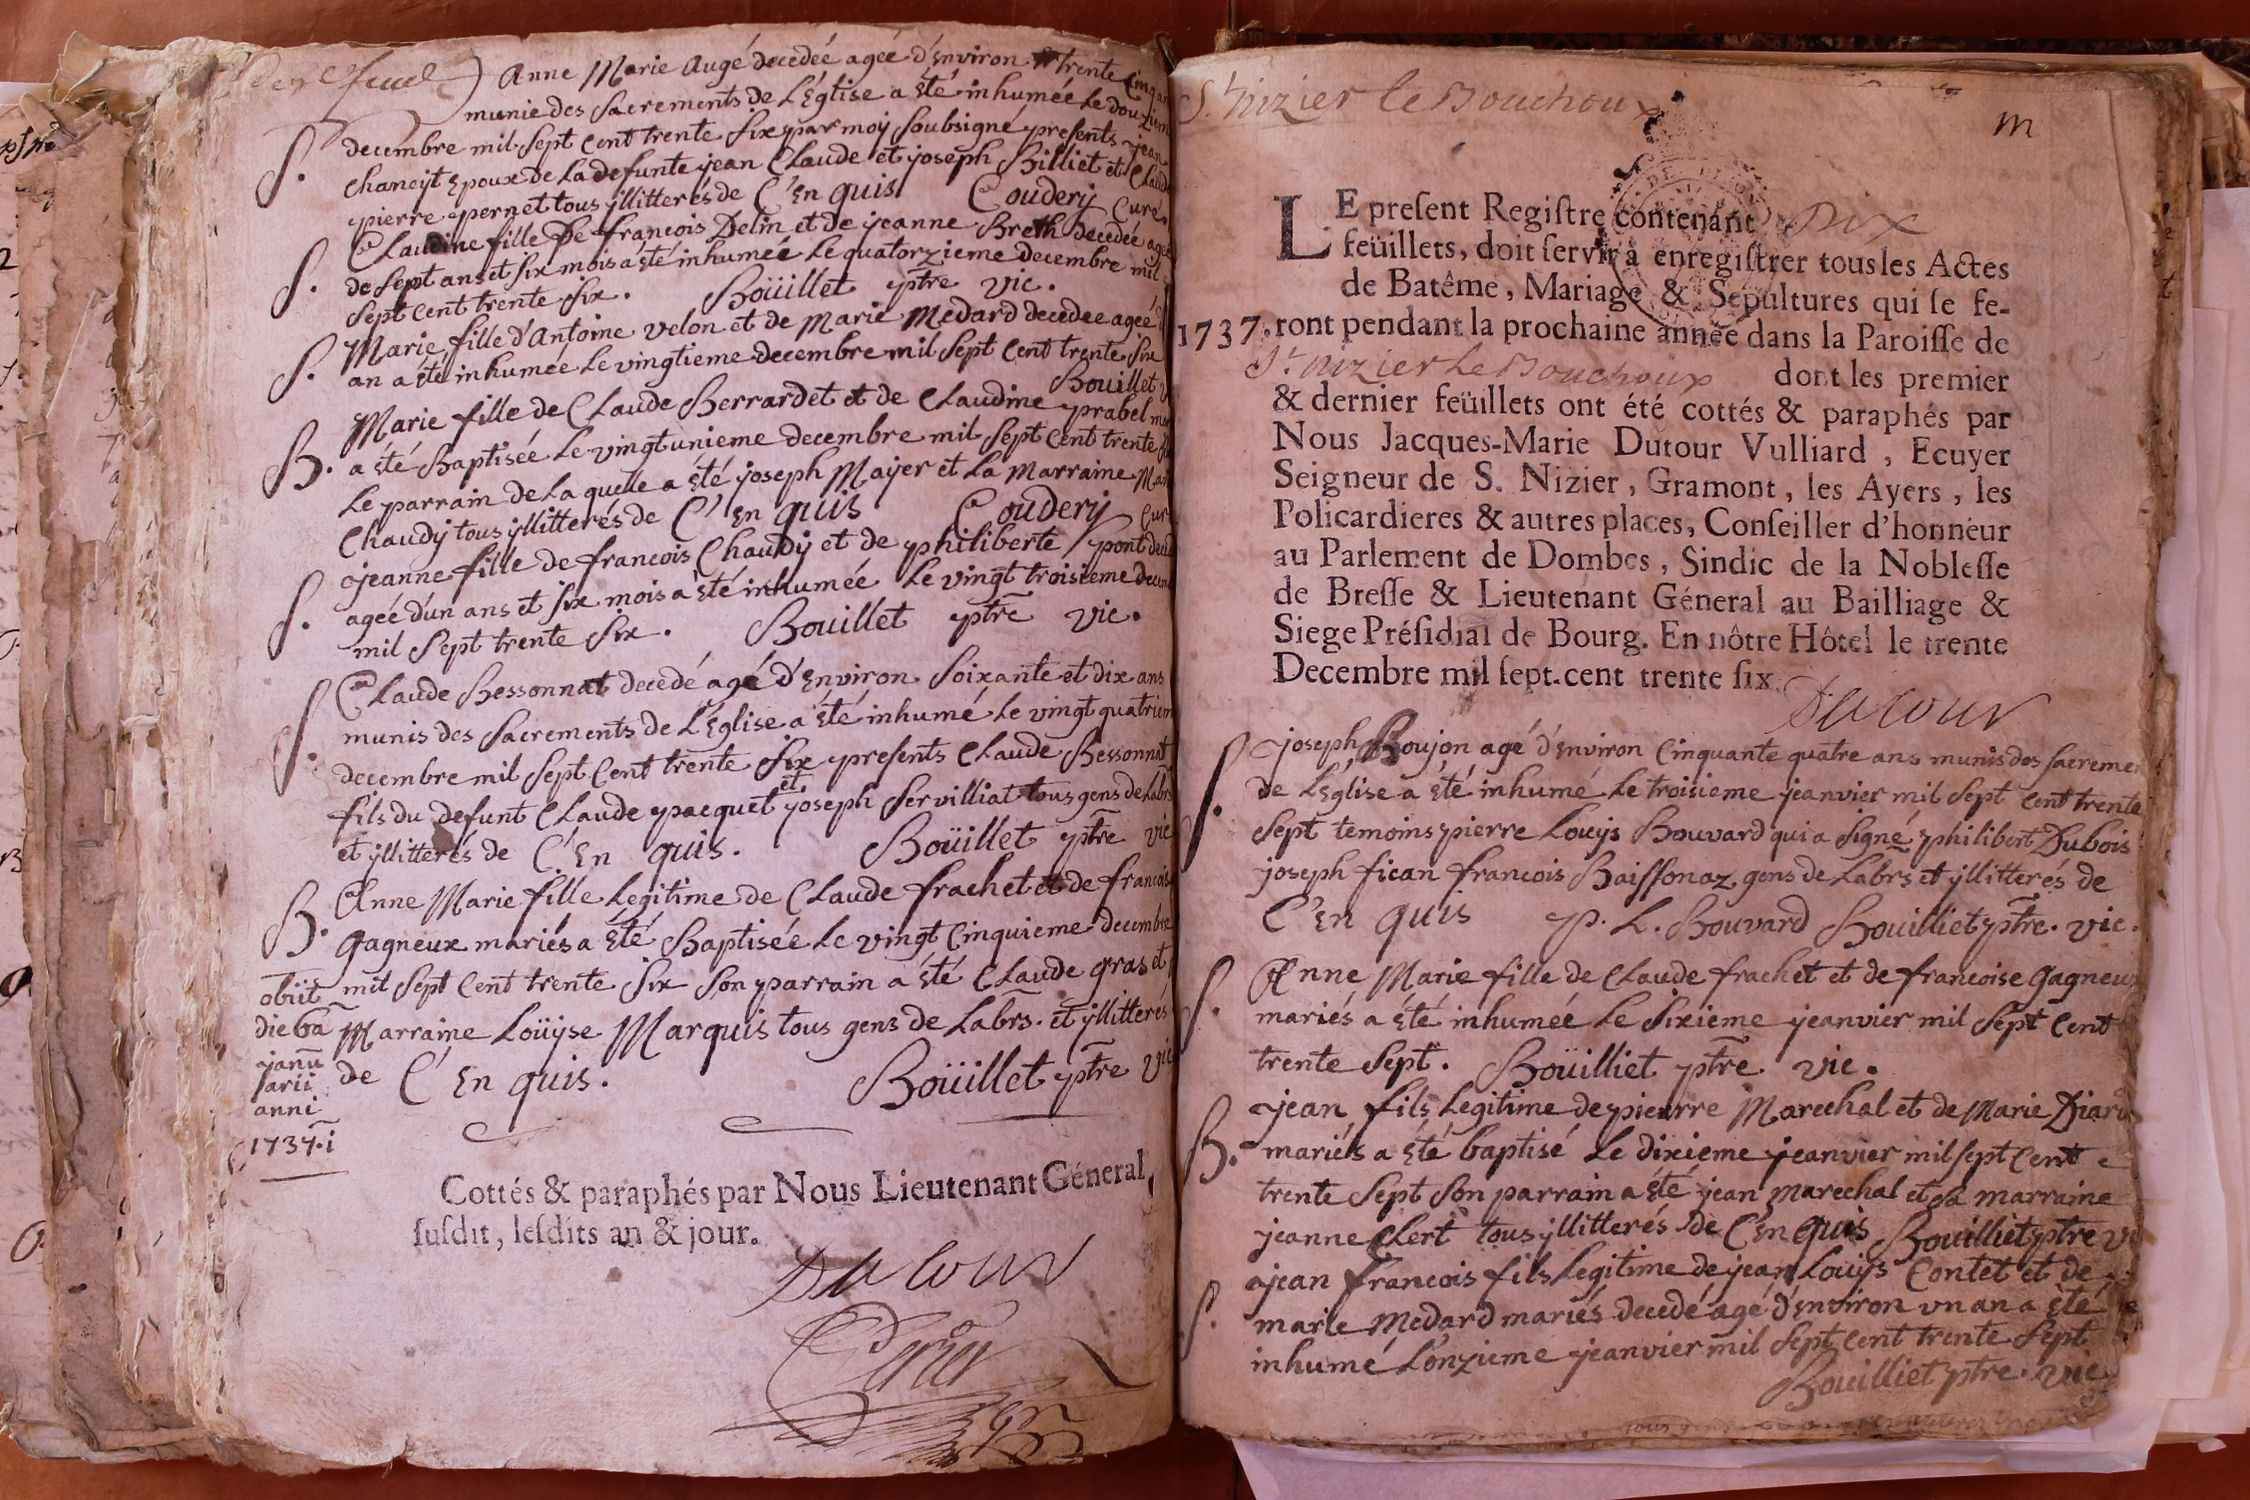 Anne Marie Augé decedée agée d'Environ trente Cinq an
munie des Sacrements de L'Eglise a Eté inhumée Le douziem
S. decembre mil Sept Cent trente Six par moy Soubsigné presents jean
Epoux de La defunte jean Claude et joseph Billiet et Claude
pierre pernet tous yllitterés de C'En quis Coudery Curé.
Claudine fille De francois Delin et de jeanne Breth Decedée agée
S. de Sept ans et Six mois a Eté inhumée Le quatorzieme decembre mil
Sept Cent trente Six. Boüillet ptre vic.
Marie fille d'Antoine velon et de Marie Medard decedee agée d
S. an a Eté inhumée Le vingtieme decembre mil Sept Cent trente Six
Bouillet
Marie fille de Claude Berrardet et de Claudine prabel
B. a Eté Baptisée Le vingt unieme decembre mil Sept Cent trente
Le parrain de La quelle a Eté joseph Mayer et La Marraine Mar
Chaudy tous yllitterés de C'En quis Coudery Cur
jeanne fille de francois Chaudy et de philiberte pont deced
S. agée d'un ans et Six mois a Eté inhumée Le vingt troisieme decem
mil Sept trente Six. Bouillet ptre vic.
Claude Bessonnat decedé agé d'Environ Soixante et dix ans
S. munis des Sacrements de L'Eglise a Eté inhumé Le vingt quatriem
decembre mil Sept Cent trente Six presents Claude Bessonnat
et
fils du defunt Claude pacquet joseph Servilliat tous gens de Labrs
et yllitterés de C'En quis. Boüillet ptre vic
Anne Marie fille Legitime de Claude frachet et de francois
B. gagneux mariés a Eté Baptisée Le vingt Cinquieme decembre
obiit mil Sept Cent trente Six Son parrain a Eté Claude gras et
die 6a Marraine Loüyse Marquis tous gens de Labrs. et yllitterés
janu
arii de C'En quis. Boüillet ptre vic
anni
1737.i
Cottés & paraphés par Nous Lieutenant Géneral,
susdit, lesdits an & jour.
Dutour
S.t Nizier le Bouchoux
m
LE present Registre contenant Dix
feüillets, doit servir à enregistrer tous les Actes
de Batême, Mariage & Sépultures qui se fe-
1737. ront pendant la prochaine année dans la Paroisse de
S.t Nizier Le Bouchoux dont les premier
& dernier feüillets ont été cottés & paraphés par
Nous Jacques-Marie Dutour Vulliard, Ecuyer
Seigneur de S. Nizier, Gramont, les Ayers, les
Policardieres & autres places, Conseiller d'honneur
au Parlement de Dombes, Sindic de la Noblesse
de Bresse & Lieutenant Géneral au Bailliage &
Siege Présidial de Bourg. En nôtre Hôtel le trente
Decembre mil sept-cent trente six.
Dutour
joseph Boujon agé d'Environ Cinquante quatre ans munis des sacremen
S. de L'Eglise a Eté inhumé Le troisieme jeanvier mil Sept Cent trente
Sept temoins pierre Louys Bouvard qui a Signé philibert Dubois
joseph fican francois Baissonaz gens de Labrs et yllitterés de
C'En quis P. L. Bouvard Boüilliet ptre. vic.
S. Anne Marie fille de Claude frachet et de francoise Gagneux
mariés a Eté inhumée Le Sixieme jeanvier mil Sept Cent
trente Sept. Boüilliet ptre vic.
jean fils Legitime de pierre Marechal et de Marie Diard
B. mariés a Eté baptisé Le dixieme jeanvier mil sept Cent
trente Sept Son parrain a Eté jean marechal et Sa marraine
jeanne Clert tous yllitterés de C'En quis Bouilliet ptre vi
jean francois fils Legitime de jean Louys Contet et de
S. marie Medard mariés decedé agé d'Environ vn an a Eté
inhumé L'onzieme jeanvier mil Sept Cent trente Sept
Bouilliet ptre. vic.